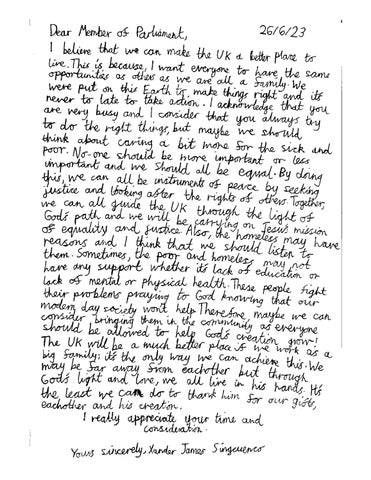 Dear Member of Parliament, 26/6/23
I believe that we can make the UK a better place to
live. This is because, I want everyone to have the same
opportunities as others as we are all a family. We
were put on this Earth to make things right and its
never to late to take action. I acknowledge that you
are very busy and I consider that you always try
to do the right things, but maybe we should
think about caring a bit more for the sick and
poor. No-one should be more important or less
important and we should all be equal. By doing
this, we can all be instruments of peace by seeking
justice and looking after the rights of others. Together,
we can all guide the UK through the light of
God's path and we will be carrying on Jesus mission
of equality and justice. Also, the homeless may have
reasons and I think that we should listen to
them. Sometimes, the poor and homeless may not
have any support whether its lack of education or
lack of mental or physical health. These people fight
their problems praying to God knowing that our
modern day society won't help. Therefore, maybe we can
consider bringing them in the community as everyone
should be allowed to help God's creation grow!
The UK will be a much better place if we work as a
big family; it's the only way we can achieve this. We
may be far away from eachother but through
God's light and love, we all live in his hands. It's
the least we can do to thank him for our gifts,
eachother and his creation.
I really appreciate your time and
consideration.
Yours sincerely, Xander James Singcuenco